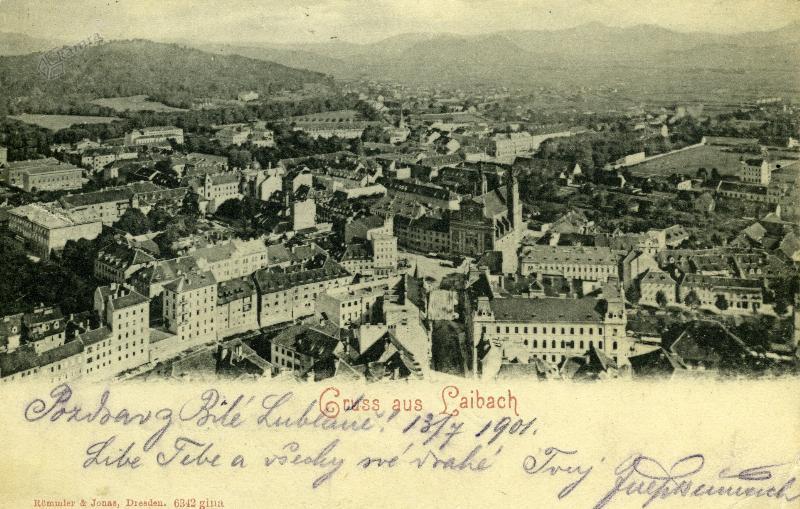 Kamra
Gruss aus Laibach
Pozdrav z Bílé Lublaně! 13/7 1901.
Líbe Tebe a všecky své drahé Tvůj
Römmler & Jonas, Dresden. 6342 gina